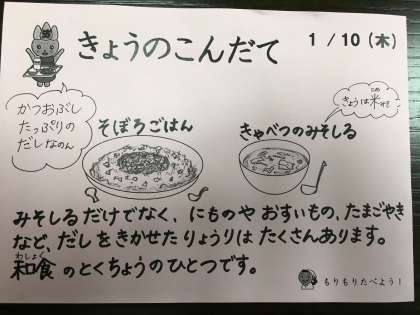 きょうのこんだて
1/10(木)
かつおぶし
たっぷりの
だしなのん
そぼろごはん
きゃべつのみそしる
きょうは米
みそしるだけでなく、にものや おすいもの、たまごやき
など、だしをきかせた りょうりは たくさんあります。
わしょく
和食 のとくちょうの ひとつです。
もりもりたべよう!